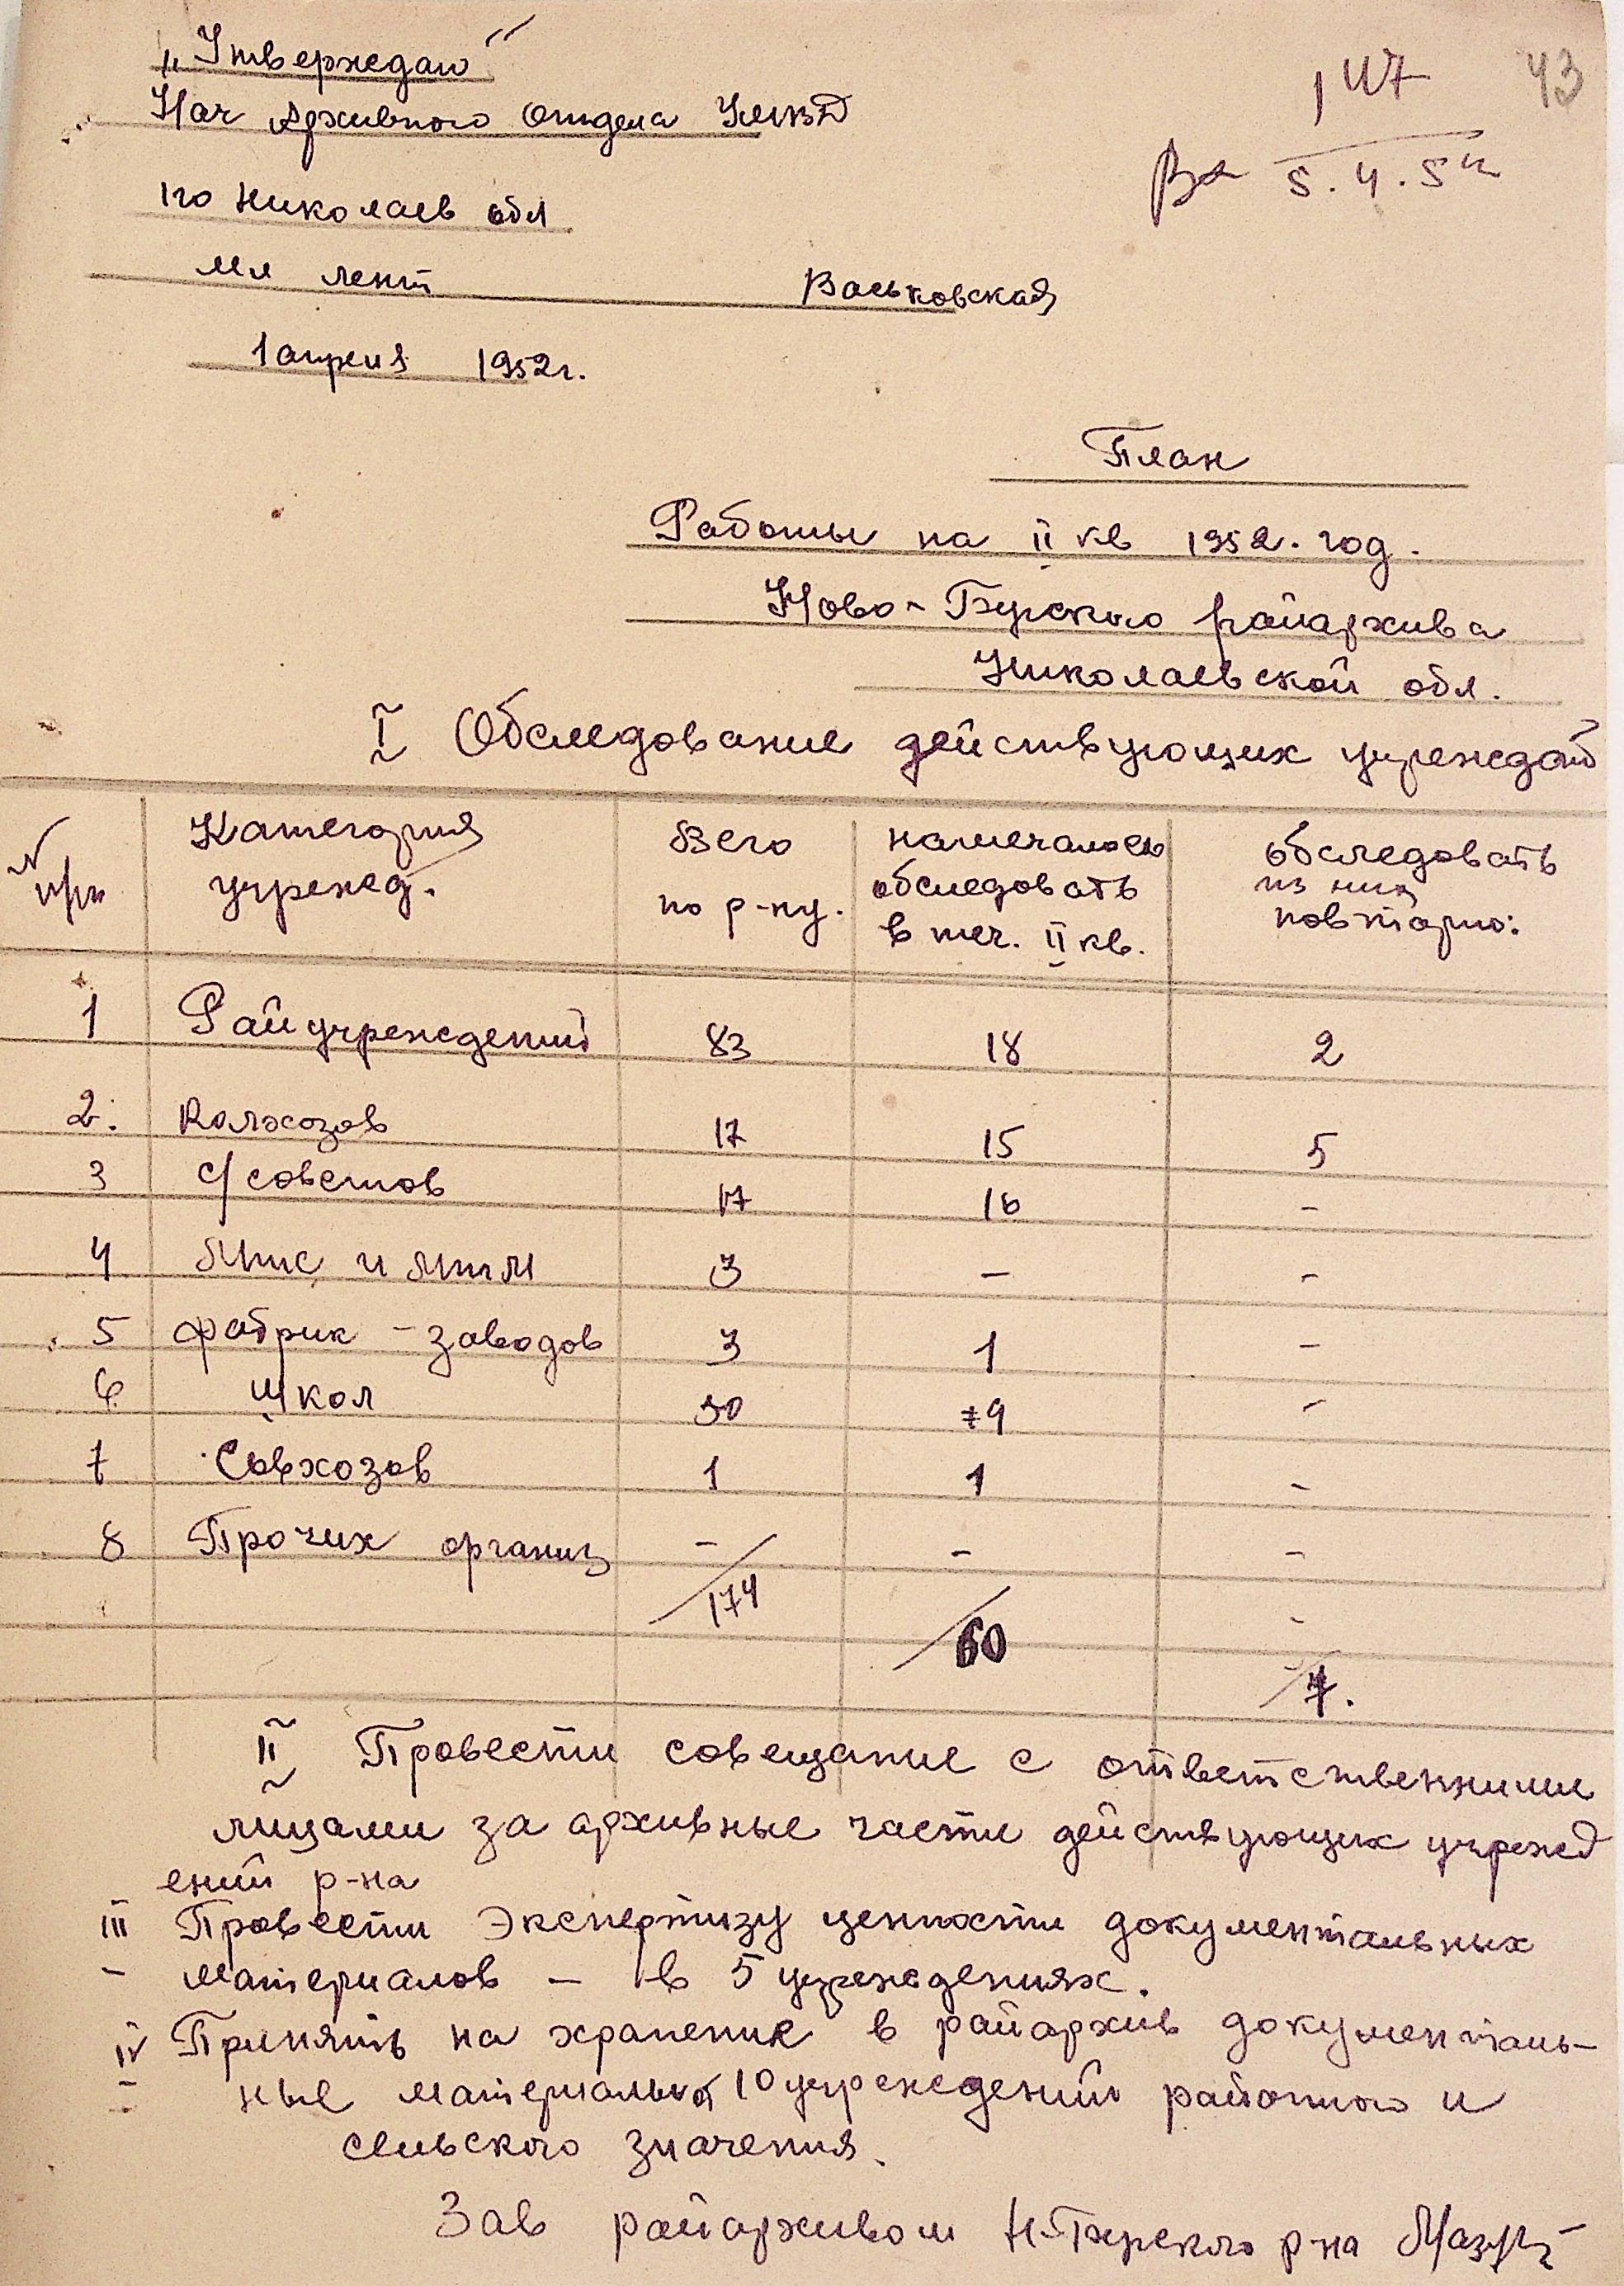 „Утверждаю“
147 43
Нач Архивного отдела УМВД
Вх 5.4.52
по Николаев обл
мл лент Васьковская
1 апреля 1952г.
План
Работы на II кв 1952. год.
Ново-Бугского райархива
Николаевской обл.
I Обследование действующих учрежд
N п/п Категория учрежд. Всего по р-ну. намечалось обследовать в теч. II кв. обследовать из них повторно:
1 Райучреждений 83 18 2
2. Колхозов 17 15 5
3 с/советов 17 16 -
4 Мтс и Мтм 3 - -
5 фабрик - заводов 3 1 -
6. Школ 50 9 -
7 Совхозов 1 1 -
8 Прочих организ - - -
174 -
60
7.
II Провести совещание с ответственными
лицами за архивные части действующих учрежд
ений р-на
III Провести Экспертизу ценности документальных
материалов - в 5 учреждениях.
IV Принять на хранение в райархив documенталь-
ные материалы от 10 учреждений районного и
сельского значения.
Зав райархивом Н-Бугского р-на